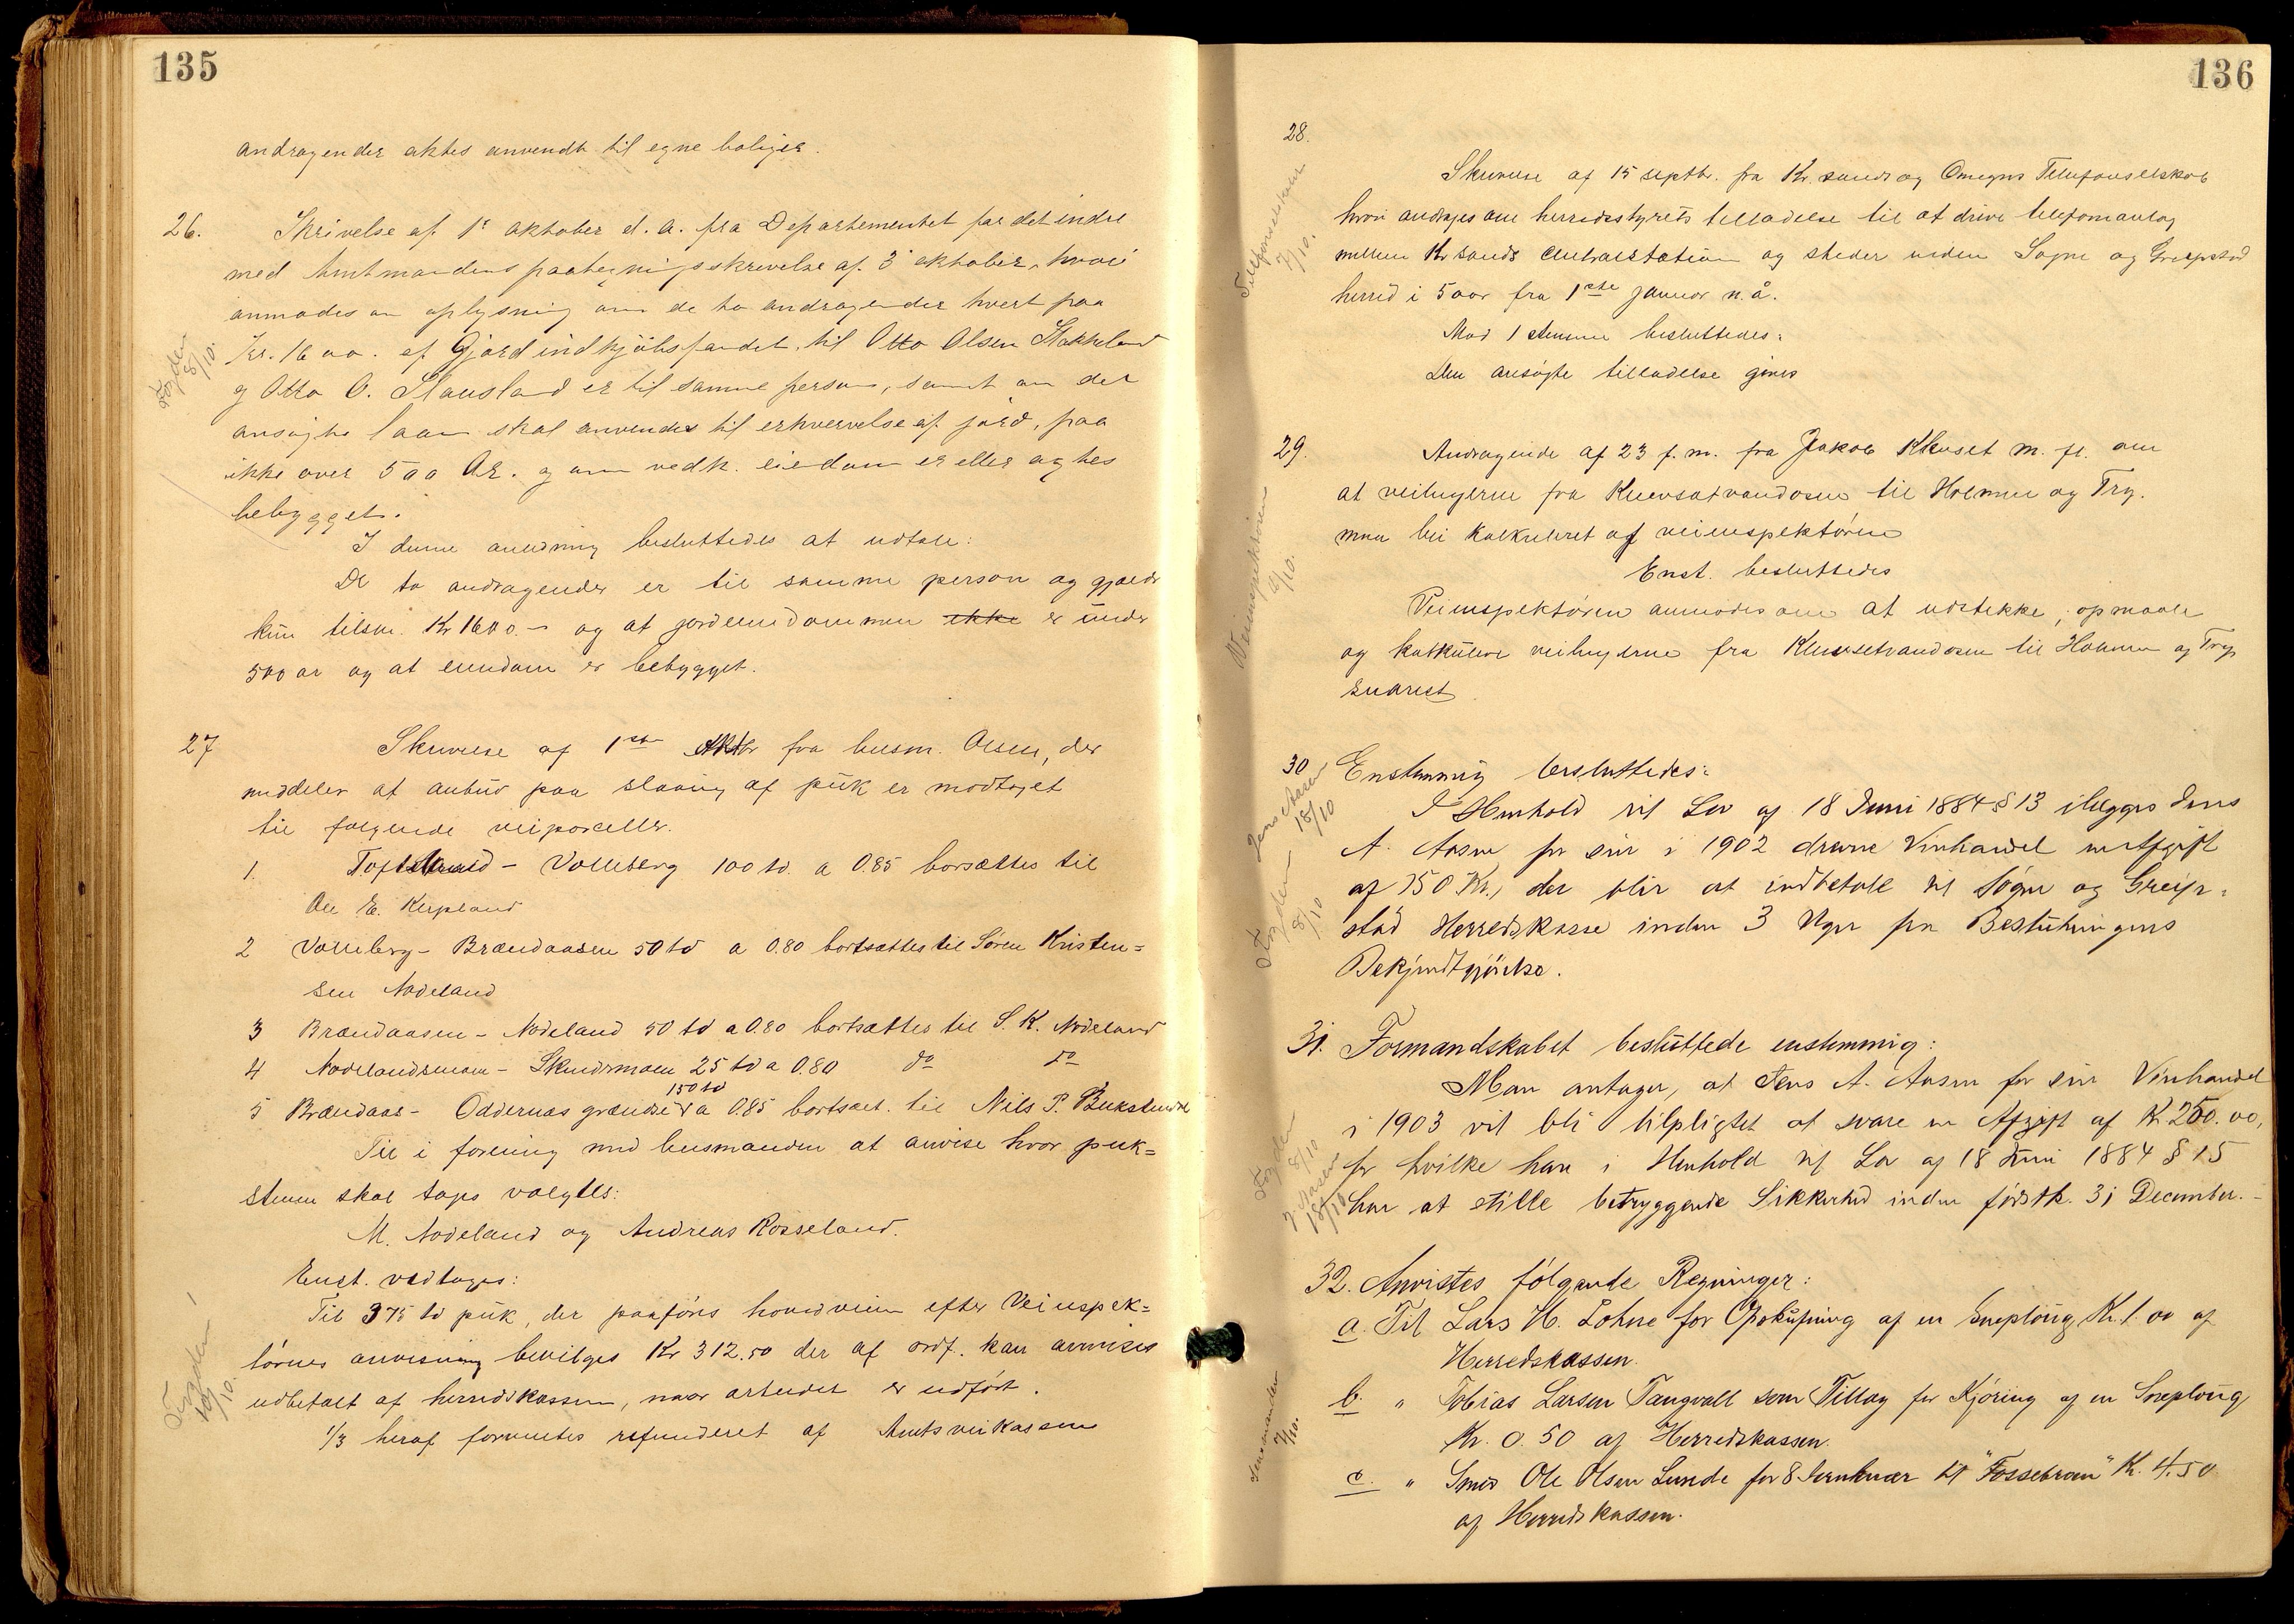 135
andragender aktes anvendt til egne boliger.
26. Skrivelse af 1e oktober d. a. fra Departementet for det indre
med Amtmandens paategningsskrivelse af 3 oktober, hvori
anmodes om oplysning om de to andragender hvert paa
Kr. 1600. af Gjordindkjøbsfondet til Otto Olsen Stakkeland
og Otto O. Stausland er til samme person, samt om det
ansøgte laan skal anvendes til erhvervelse af jord, paa
ikke over 500 Ar. og om vedk. eiendom er eller agtes
bebygget.
Fogden
8/10.
I denne anledning besluttedes at udtale:
De to andragender er til samme person og gjælder
kun tilsm. Kr 1600.- og at jordeiendommen ikke er under
500 ar og at eiendom er bebygget.
27 Skrivelse af 1ste oktbr fra lensm. Olsen, der
meddeler at anbud paa slaaing af puk er modtaget
til følgende veiparceller.
1. Tofteland - Volleberg 100 td. a 0.85 borsættes til
Ole E. Repland
2 Volleberg - Brændaasen 50 td a 0.80 bortsættes til Søren Kristen=
sen Nodeland
3 Brændaasen - Nodeland 50 td a 0.80 bortsættes til S. K. Nodeland
4 Nodelandsmoen - Skindsmoen 25 td a 0.80 do do
5 Brændaas - Oddernæs grændse 150 td a 0.85 bortsæt. til Nils P.
Til i forening med lensmanden at anvise hvor puk=
stenen skal tages valgtes:
M. Nodeland og Andreas Rosseland.
Enst. vedtoges:
Til 375 td puk, der paaføres hovedveien efter Veiinspek=
tørens anvisning bevilges Kr 312.50 der af ordf. kan anvises
udbetalt af herredskassen, naar arbeidet er udført.
1/3 heraf forventes refunderet af Amtsveikassen
Fogden
10/10.
136
28.
Skrivelse af 15 septbr. fra Kr.sands og Omegns Telefonselskab
hvori andrages om herredsstyrets tilladelse til at drive telefonanlæg
mellem Kr.sands centralstation og steder inden Søgne og Greipstad
herred i 5 aar fra 1ste januar n.å.
Mod 1 stemme besluttedes:
Den ansøgte tilladelse gives
Telefonselskabet
7/10.
29. Andragende af 23 f. m. fra Jakob Kleuset m. fl. om
at veilinjerne fra Klevsetvandosen til Holmen og Try.
maa bli kalkuleret af veiinspektøren
Enst. besluttedes
Veiinspektøren anmodes om at udstikke, opmaale
og kalkulere veilinjerne fra Klevsetvandosen til Holmen og Try
snarest.
Veiinspektøren
8/10.
30 Enstemmig besluttedes:
I Henhold til Lov af 18 Juni 1884 § 13 ilægges Jens
A. Aasen for sin i 1902 drevne Vinhandel en Afgift
af 150 Kr., der blir at indbetale til Søgne og Greip=
stad Herredskasse inden 3 Uger fra Beslutningens
Bekjendtgjørelse.
Jens Aasen
18/10
Fogden
8/10
31. Formandskabet besluttede enstemmig:
Man antager, at Jens A. Aasen for sin Vinhandel
i 1903 vil bli tilpligtet at svare en Afgift af Kr 250.00,
for hvilke han i Henhold til Lov af 18 Juni 1884 § 15
har at stille betryggende Sikkerhed inden førstk. 31 December.-
Fogden
8/10
J Aasen
18/10
32. Anvistes følgende Regninger:
a. Til Lars H. Lohne for Opskufning af en Sneploug Kr. 1.00 af
Herredskassen.
b. " Tobias Larsen Tangvall som Tillæg for Kjøring af en Sneploug
Kr. 0.50 af Herredskassen.
c. " Smed Ole Olsen Lunde for 8 til "Fossebroen" Kr. 4.50
af Herredskassen.
Lensmanden
7/10.